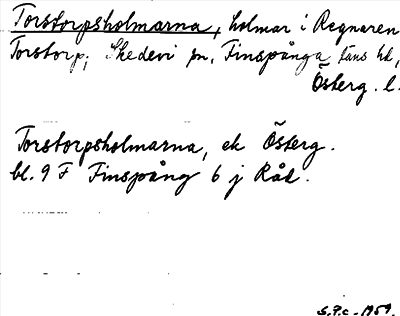 Torstorpsholmarna, holmar i Regnaren
Torstorp, Skedevi sn, Finspånga läns hd,
Österg. l.
Torstorpsholmarna, ek Österg.
bl. 9 F Finspång 6 j Råd.
S.P.c. 1959.